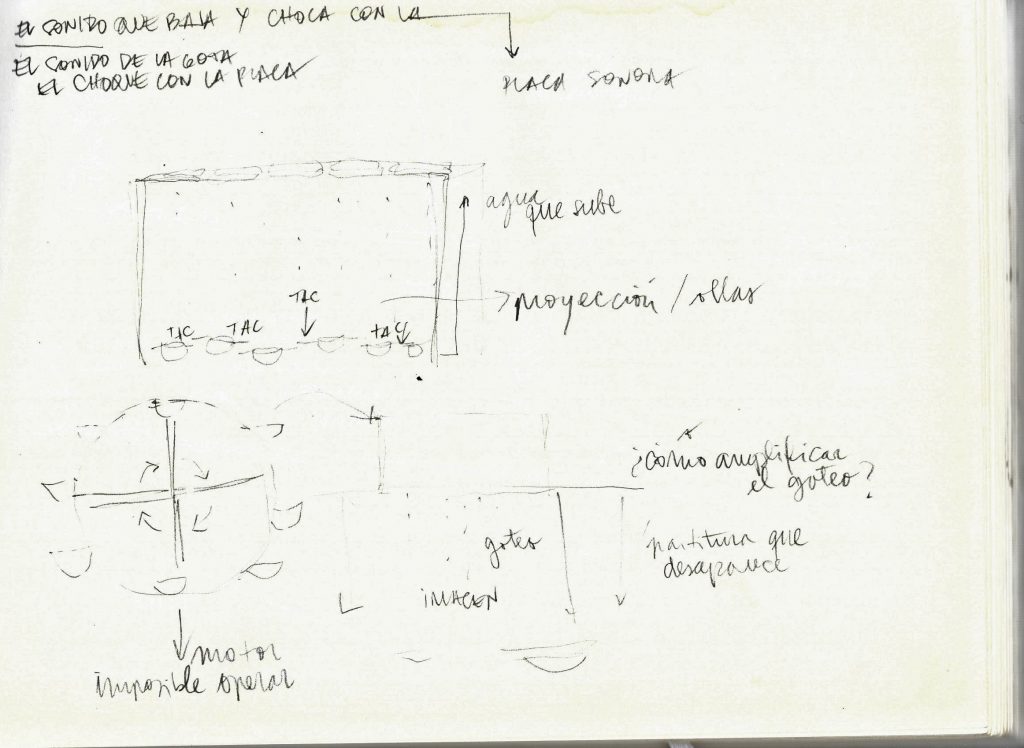 EL SONIDO QUE BAJA Y CHOCA CON LA
EL SONIDO DE LA GOTA
EL CHOQUE CON LA PLACA
PLACA SONORA
agua
que sube
TAC
proyección / ollas
TAC TAC TAC
¿cómo amplificar
el goteo?
goteo
partitura que
desaparece
IMAGEN
motor
imposible operar